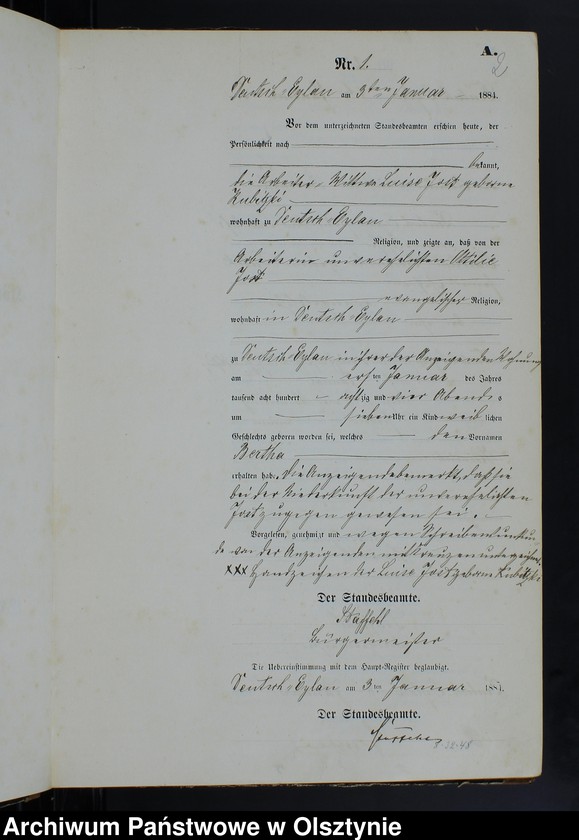 A.
2
Nr. 1.
Deutsch-Eylau am 3ten Januar 1884.
Vor dem unterzeichneten Standesbeamten erschien heute, der
Persönlichkeit nach
bekannt,
die Arbeiter-Wittwe Luise Jost geborne
Kubitzki
wohnhaft zu Deutsch-Eylau
Religion, und zeigte an, daß von der
Arbeiterin unverehelichten Ottilie
Jost
evangelischer Religion,
wohnhaft in Deutsch-Eylau
zu Deutsch-Eylau in ihrer der Anzeigenden Wohnung
am ersten Januar des Jahres
tausend acht hundert achtzig und vier Abends
um sieben Uhr ein Kind weiblichen
Geschlechts geboren worden sei, welches den Vornamen
Bertha
erhalten habe. Die Anzeigende bemerkt, daß sie
bei der Niederkunft der unverehelichten
Jost zugegen gewesen sei.
Vorgelesen, genehmigt und wegen Schreibensunkun-
de von der Anzeigenden mit Kreuzen unterzeichnet.
XXX Handzeichen der Luise Jost geborne Kubitzki
Der Standesbeamte.
Staffehl
Bürgermeister
Die Uebereinstimmung mit dem Haupt-Register beglaubigt.
Deutsch-Eylau am 3ten Januar 1884.
Der Standesbeamte.
8-22-48
Archiwum Państwowe w Olsztynie